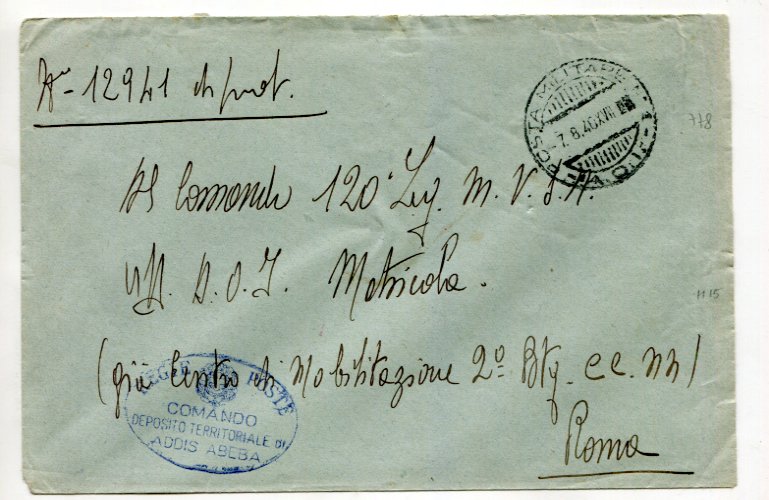 N° 12941 di prot.
POSTA MILITARE
7.8.40 XVIII
778
Al Comando 120° Leg. M.V.S.N.
Uff. A.O.I. Matricola.
1115
(già Centro di Mobilitazione 2° Btg. CC.NN)
Roma
REGIE POSTE
COMANDO
DEPOSITO TERRITORIALE DI
ADDIS ABEBA